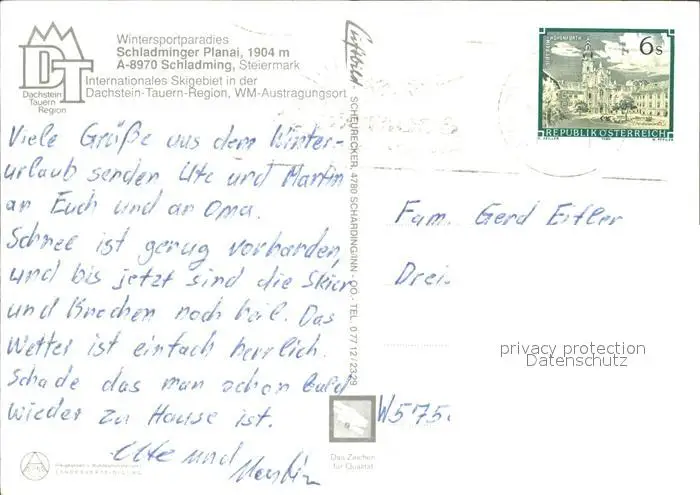 Wintersportparadies
Schladminger Planai, 1904 m
A-8970 Schladming, Steiermark
Internationales Skigebiet in der
Dachstein-Tauern-Region, WM-Austragungsort
DT
Dachstein
Tauern
Region
Viele Grüße aus dem Winter-
urlaub senden Ute und Martin
an Euch und an Oma.
Schnee ist genug vorhanden,
und bis jetzt sind die Skier
und Knochen noch heil. Das
Wetter ist einfach herrlich.
Schade das man schon bald
wieder zu Hause ist.
Ute und Martin
Luftbild SCHEURECKER, 4780 SCHÄRDING/INN - OÖ.- TEL. 0 77 12 / 23 29
6s
REPUBLIK ÖSTERREICH
Fam. Gerd Eitler
Drei
W575
privacy protection
Datenschutz
Das Zeichen
für Qualität